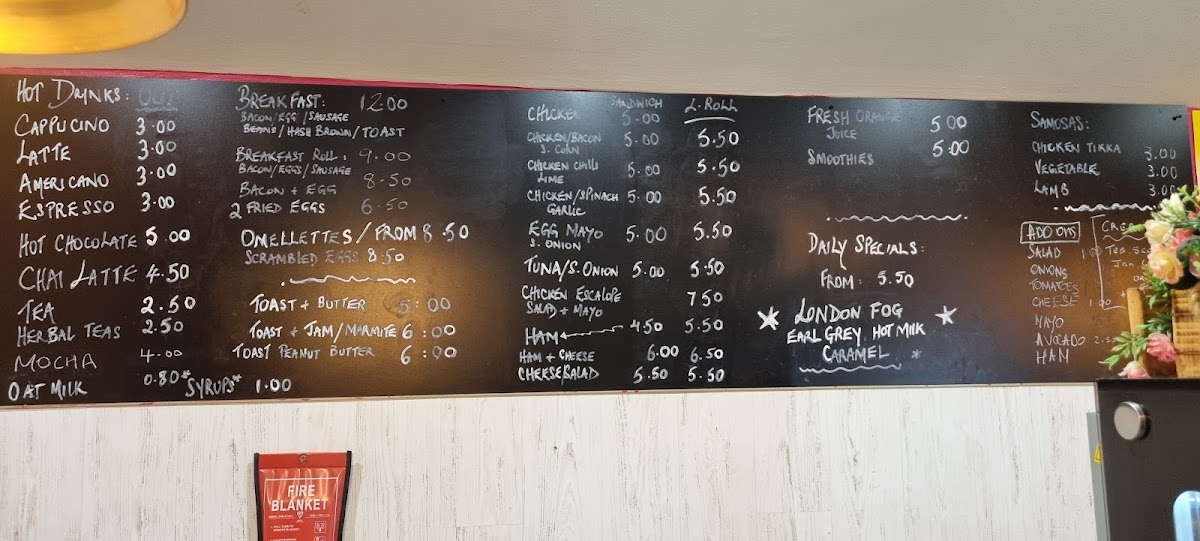 HOT DRINKS:
CAPPUCINO 3.00
LATTE 3.00
AMERICANO 3.00
ESPRESSO 3.00
HOT CHOCOLATE 5.00
CHAI LATTE 4.50
TEA 2.50
HERBAL TEAS 2.50
MOCHA 4.00
OAT MILK 0.80*
*SYRUPS* 1.00
BREAKFAST: 12.00
BACON/EGG/SAUSAGE
BEANS/HASH BROWN/TOAST
BREAKFAST ROLL: 9.00
BACON/EGGS/SAUSAGE
BACON + EGG 8.50
2 FRIED EGGS 6.50
OMELLETTES/FROM 8.50
SCRAMBLED EGGS 8.50
TOAST + BUTTER 5:00
TOAST + JAM/MARMITE 6:00
TOAST PEANUT BUTTER 6:00
SANDWICH L. ROLL
CHICKEN 5.00
CHICKEN/BACON 5.00 5.50
S. CORN
CHICKEN CHILLI 5.00 5.50
LIME
CHICKEN/SPINACH 5.00 5.50
GARLIC
EGG MAYO 5.00 5.50
S. ONION
TUNA/S. ONION 5.00 5.50
CHICKEN ESCALOPE 7.50
SALAD + MAYO
HAM 4.50 5.50
HAM + CHEESE 6.00 6.50
CHEESE/SALAD 5.50 5.50
FRESH ORANGE 5.00
JUICE
SMOOTHIES 5:00
DAILY SPECIALS:
FROM: 5.50
LONDON FOG
EARL GREY, HOT MILK
CARAMEL
SAMOSAS:
CHICKEN TIKKA 3.00
VEGETABLE 3.00
LAMB 3.00
ADD ONS
SALAD 1.00
ONIONS
TOMATOES
CHEESE 1.00
MAYO
AVOCADO
HAM
FIRE
BLANKET